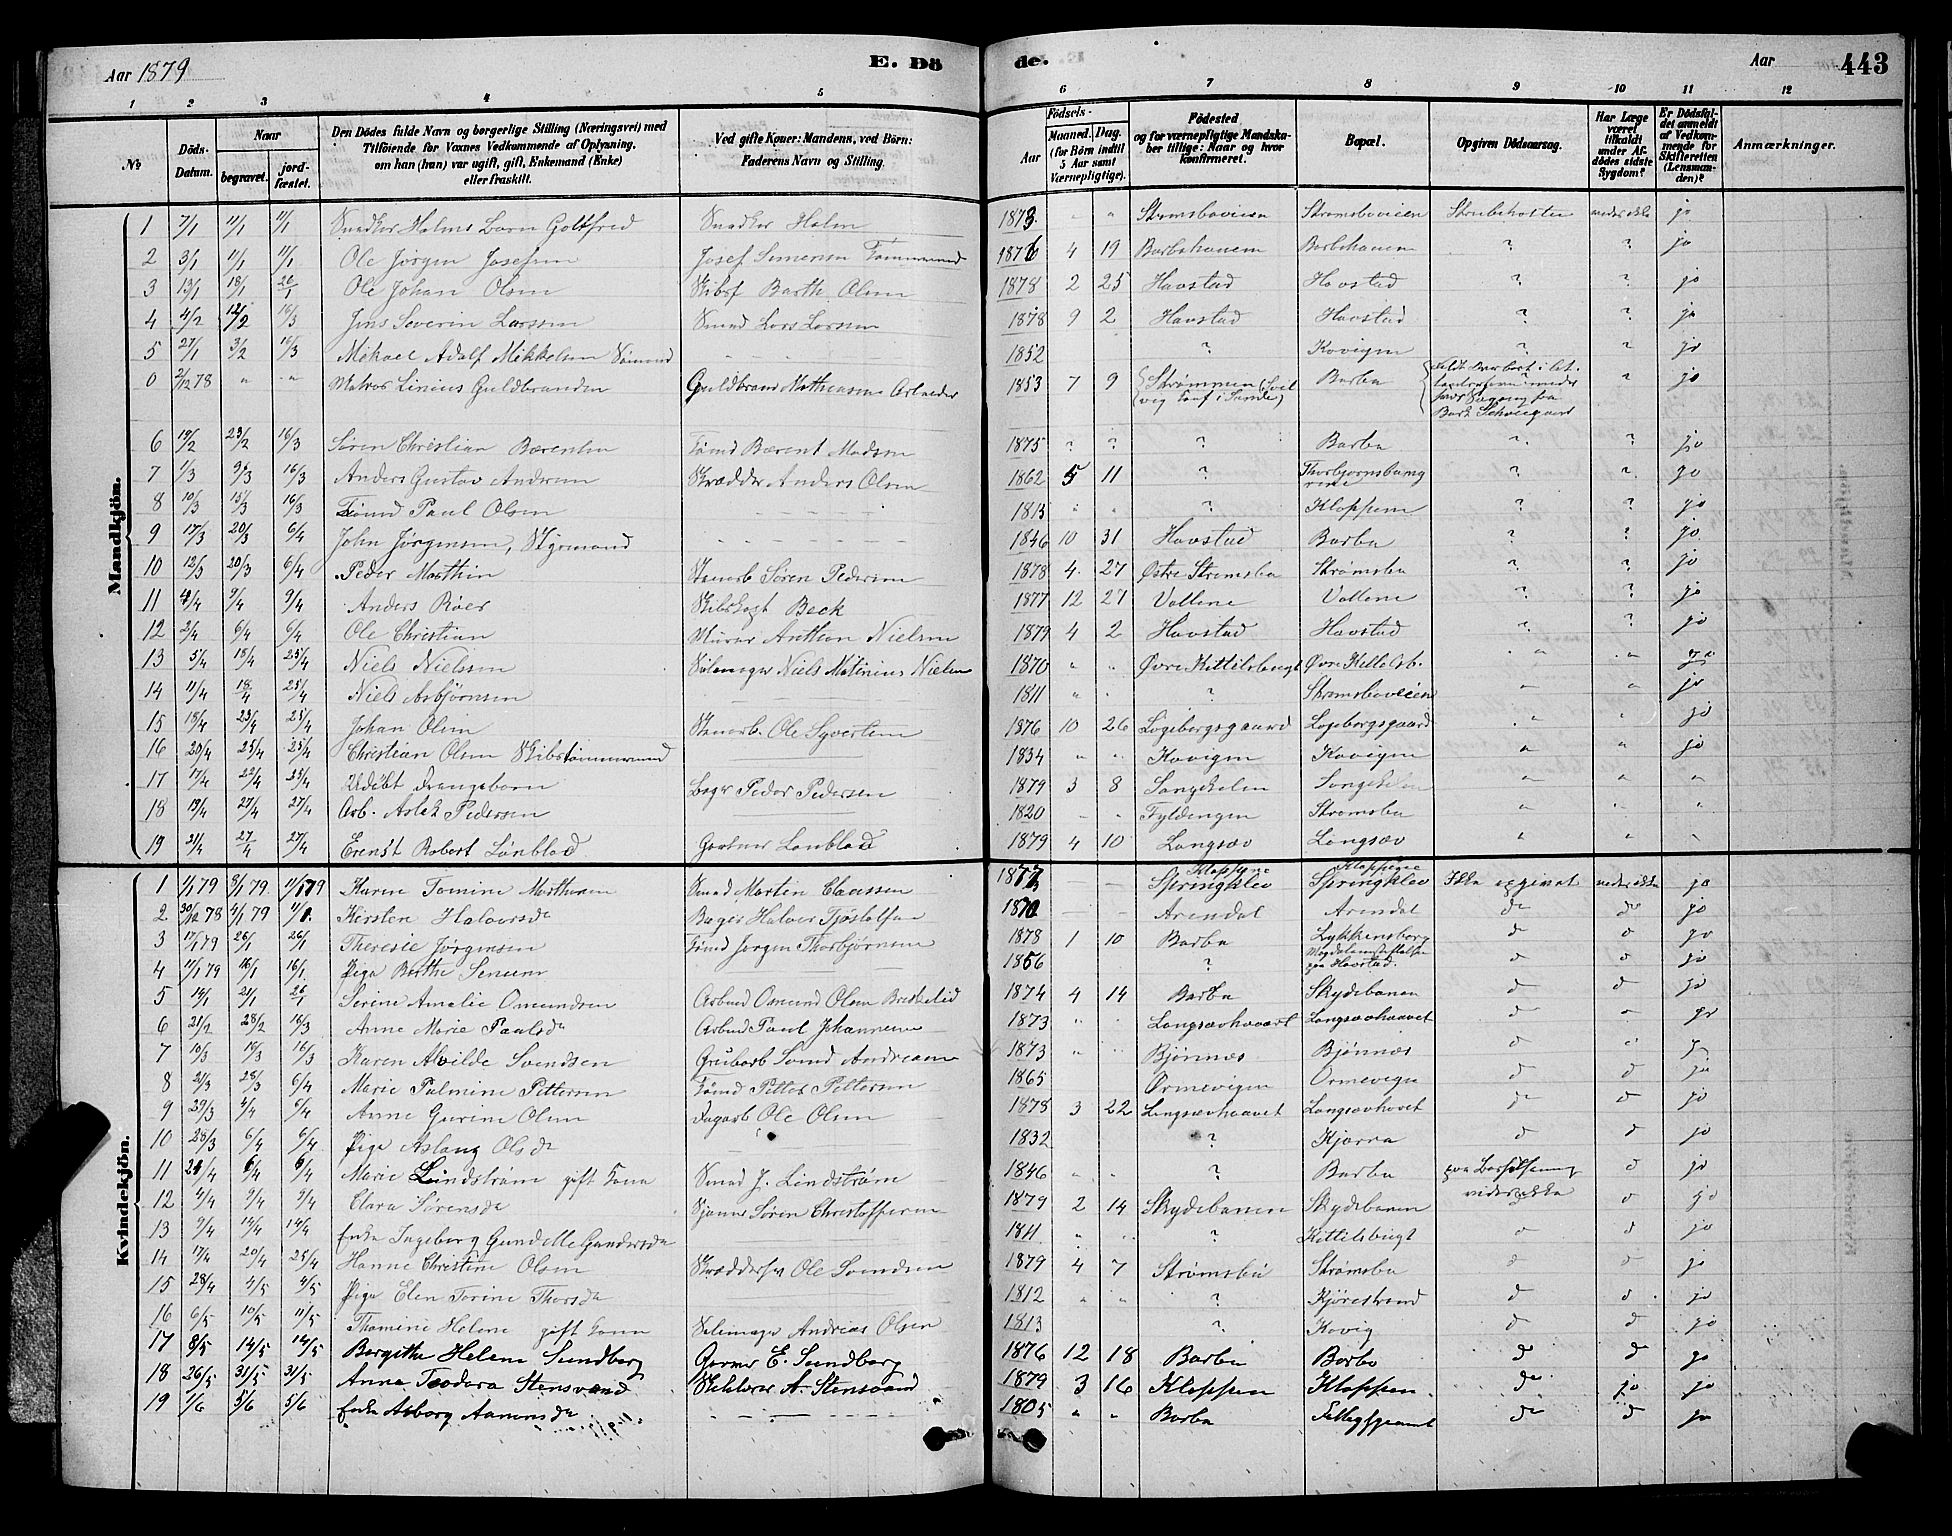 Aar 1879
E. Dö
de.
Aar
443
1 2 3 4 5 6 7 8 9 10 11 12
No
Döds-Datum.
Naar begravet. jordfæstet.
Den Dödes fulde Navn og borgerlige Stilling (Næringsvei) med Tilföiende for Voxnes Vedkommende af Oplysning, om han (hun) var ugift, gift, Enkemand (Enke) eller fraskilt.
Ved gifte Koner: Mandens, ved Börn: Faderens Navn og Stilling.
Födsels- Aar Maaned. Dag. (for Börn indtil 5 Aar samt Værnepligtige).
Födested og for værnepligtige Mandskaber tillige: Naar og hvor konfirmeret.
Bopæl.
Opgiven Dödsaarsag.
Har Læge været tilkaldt under Afdödes sidste Sygdom?
Er Dödsfaldet anmeldt af Vedkommende for Skifteretten (Lensmanden)?
Anmærkninger.
Mandkjön.
1 7/1 11/1 11/1 Snedker Holms Barn Gottfred Snedker Holm 1873 " " Strømsboveien Strømsboveien Strubehoste jo
2 3/1 11/1 11/1 Ole Jørgen Josefsen Josef Simensen Tømmermand 1876 4 19 Barbohauen Barbohauen " ? jo
3 13/1 18/1 26/1 Ole Johan Olsen Skibsf Barth. Olsen 1878 2 25 Havstad Havstad ? ? jo
4 4/2 12/2 16/3 Jens Severin Larssen Smed Lars Larssen 1878 9 2 Havstad Havstad ? " jo
5 27/1 3/2 16/3 Mikael Adolf Mikkelsen Sømand - - - 1852 ? Kovigen ? " jo
0 2/12 78 " " Matros Linius Guldbrandsen Guldbrand Mathiasen Arbeider 1853 7 9 Strømmen Barbo " jo
6 19/2 23/2 16/3 Søren Christian Bærentsen Tømd Bærent Madsen 1875 ? ? ? Barbo ? ? jo
7 1/3 9/3 16/3 Anders Gustav Andersen Skrædder Anders Olsen 1862 5 11 ? " ? jo
8 10/3 15/3 16/3 Tømd Paul Olsen - - - 1813 " " ? Kloppene ? ? jo
9 17/3 20/3 6/4 John Jørgensen, Styrmand - - - 1846 10 31 Havstad Barbo ? ? jo
10 12/3 20/3 6/4 Peder Marthin Stenarb Søren Pedersen 1878 4 27 Østre Strømsbo Strømsbo ? ? jo
11 4/4 9/4 9/4 Anders Röer Skibsfogt Beck 1877 12 27 Vollene Vollene " ? jo
12 2/4 6/4 6/4 Ole Christian Murer Anthon Nielsen 1879 4 2 Havstad Havstad " ? jo
13 5/4 18/4 25/4 Niels Nielsen Seilmager Niels Matinius Nielsen 1870 " " Øvre Kittelsbugt Øvre Kittelsb. " " jo
14 11/4 18/4 25/4 Niels Asbjørnsen - 1811 " ? Strømsboveien " " jo
15 18/4 23/4 25/4 Johan Olsen Stenarb. Ole Syvertsen 1876 10 26 Logeborgsgaard Logeborgsgaard " " jo
16 20/4 25/4 25/4 Christian Olsen Skibstømmermand 1834 " " Kovigen Kovigen " " jo
17 17/4 22/4 25/4 Udöbt Drengebarn Bager Peder Pedersen 1879 3 8 Songekelen Songekelen " " "
18 19/4 27/4 27/4 Arb. Aslak Pedersen 1820 - " Fyldengen Strømsbo " " "
19 21/4 27/4 27/4 Erenst Robert Lønblad Gartner Lønblad 1879 4 10 Langsæv Langsæv " " "
Kvindekjön.
1 1/1 79 8/1 79. 11/1 79 Karen Tomine Mortensen Smed Morten Claussen 1877 - - Kloppene Springklev Kloppene Springklev Ikke opgivet jo
2 30/12 78 4/1 79 11/1. Kirsten Halvorsdr Bager Halvor Tjøstolfsen 1870 - - Arendal Arendal do do jo
3 17/1 79 26/1 26/1 Theresie Jørgensen Tømd Jørgen Thorbjørnsen 1878 1 10 Barbo Lykkensborg d d jo
4 11/1 79 16/1 16/1 Pige Berthe Simens 1856 ? Magdalenestiftelsen paa Havstad. d d jo
5 14/1 21/1 26/1 Serine Amalie Omundsen Arbmd Omund Olsen Birkelid 1874 4 14 Barbo Skydebanen d d jo
6 21/2 28/2 16/3 Anne Marie Paulsdr Arbmd Paul Johannessen 1873 " " Langsævhavet Langsævhavet d " jo
7 10/3 19/3 16/3 Karen Alvilde Svendsen Grubarb Svend Andreasen 1873 " " Bjønnæs Bjønnæs d d jo
8 21/3 28/3 6/4 Marie Palmine Pettersen Tømd Petter Pettersen 1865 Ormevigen Ormevigen d d jo
9 29/3 4/4 6/4 Anne Gurine Olsen Dagarb Ole Olsen 1878 3 22 Langsævhavet Langsævhovet do d jo
10 28/3 6/4 6/4 Pige Aslaug Olsdr 1832 ? Kjærra d d jo
11 24/4 6/4 6/4 Marie Lindstrøm gift Kone Smed J. Lindstrøm 1846 " ? Barbo d jo
12 4/4 9/4 9/4 Clara Sørensdr Sjømd Søren Christoffersen 1879 2 14 Skydebanen Skydebanen d jo
13 9/4 14/4 14/4 Enke Ingeborg Gundelle Gundersdr 1811 " " ? Kittelsbugt d d jo
14 17/4 20/4 25/4 Hanne Christine Olsen Skræddersv Ole Svendsen 1879 4 7 Strømsbo Strømsbo d d jo
15 28/4 4/5 4/5 Pige Elen Torine Thorsdr 1812 " " ? Kjørestrand d d jo
16 6/5 10/5 11/5 Thomine Helene gift Kone Seilmager Andreas Olsen 1813 ? Kovig d d jo
17 8/5 14/5 14/5 Bergithe Helene Sundberg Garver E. Sundberg 1876 12 18 Barbo Barbo do do jo
18 26/5 31/5 31/5 Anna Teodora Stensvand A. Stensvand 1879 3 16 Kloppen Kloppen do jo jo
19 1/6 5/6 5/6 Enke Asborg Aanensdr 1805 " " Barbo do d jo